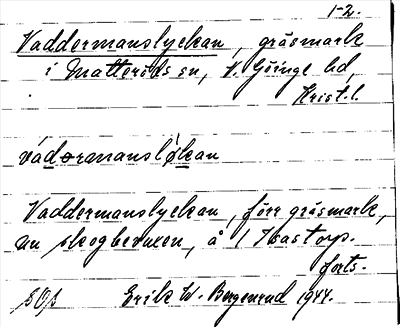 1-2.
Vaddermanslyckan, gräsmark
i Matteröds sn, V. Göinge hd,
Krist. l.
vádərmanslø̀kan
Vaddermanslyckan, förr gräsmark,
nu skogbevuxen, å 1 Ilsastorp.
forts.
Erik W. Bergenrud 1944.